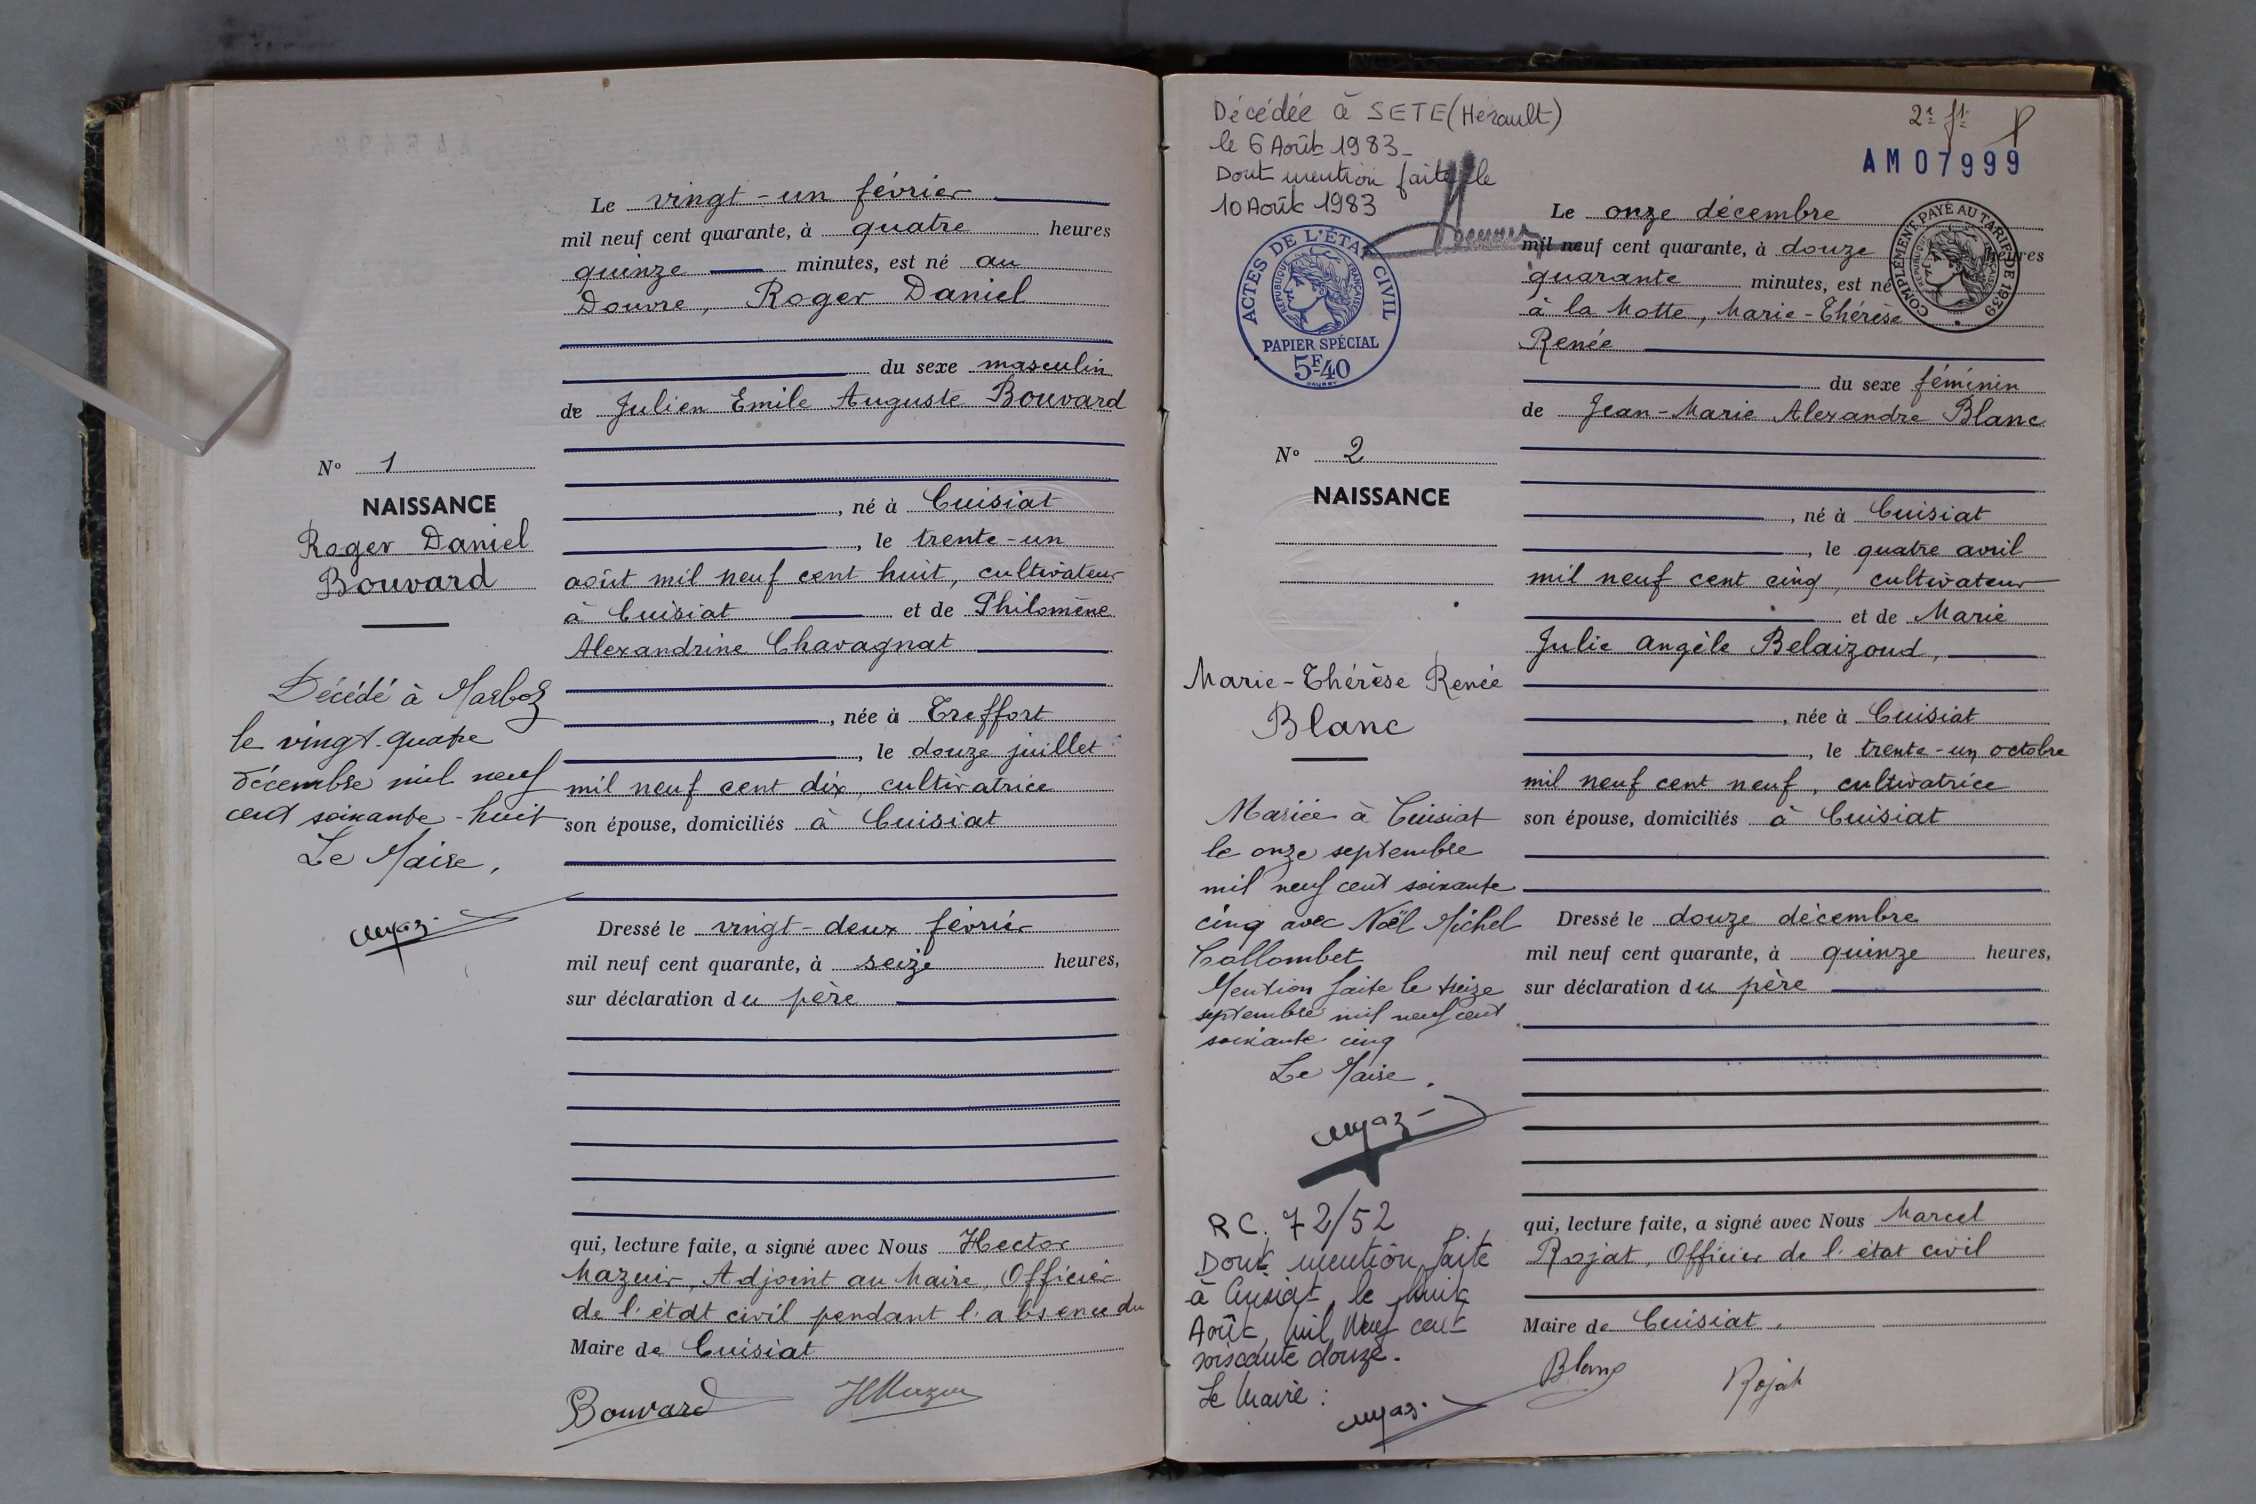 Le vingt-un février
mil neuf cent quarante, à quatre heures
quinze minutes, est né au
Douvre, Roger Daniel
du sexe masculin
de Julien Emile Auguste Bouvard
, né à Cuisiat
, le trente-un
août mil neuf cent huit, cultivateur
à Cuisiat et de Philomène
Alexandrine Chavagnat
, née à Treffort
, le douze juillet
mil neuf cent dix, cultivatrice
son épouse, domiciliés à Cuisiat
Dressé le vingt-deux février
mil neuf cent quarante, à seize heures,
sur déclaration du père
qui, lecture faite, a signé avec Nous Hector
Mazuir, Adjoint au Maire, Officier
de l'état civil pendant l'absence du
Maire de Cuisiat
Bouvard HMazuir
N° 1
NAISSANCE
Roger Daniel
Bouvard
Décédé à Marboz
le vingt-quatre
décembre mil neuf
cent soixante-huit
Le Maire,
Décédée à SETE (Hérault)
le 6 Août 1983
Dont mention faite le
10 Août 1983
ACTES DE L'ÉTAT CIVIL
RÉPUBLIQUE FRANÇAISE
PAPIER SPÉCIAL
5F40
N° 2
NAISSANCE
Marie-Thérèse Renée
Blanc
Mariée à Cuisiat
le onze septembre
mil neuf cent soixante
cinq avec Noël Michel
Collombet
Mention faite le treize
septembre mil neuf cent
soixante cinq
Le Maire,
RC. 72/52
Dont mention faite
à Cuisiat, le huit
Août, mil neuf cent
soixante douze.
Le Maire :
2e ft
AM07999
COMPLÉMENT PAYÉ AU TARIF DE 1939
Le onze décembre
mil neuf cent quarante, à douze heures
quarante minutes, est né
à la Motte, Marie-Thérèse
Renée
du sexe féminin
de Jean-Marie Alexandre Blanc
, né à Cuisiat
, le quatre avril
mil neuf cent cinq, cultivateur
et de Marie
Julie Angèle Belaizoud,
, née à Cuisiat
, le trente-un octobre
mil neuf cent neuf, cultivatrice
son épouse, domiciliés à Cuisiat
Dressé le douze décembre
mil neuf cent quarante, à quinze heures,
sur déclaration du père
qui, lecture faite, a signé avec Nous Marcel
Rojat, Officier de l'état civil
Maire de Cuisiat.
Blanc Rojat